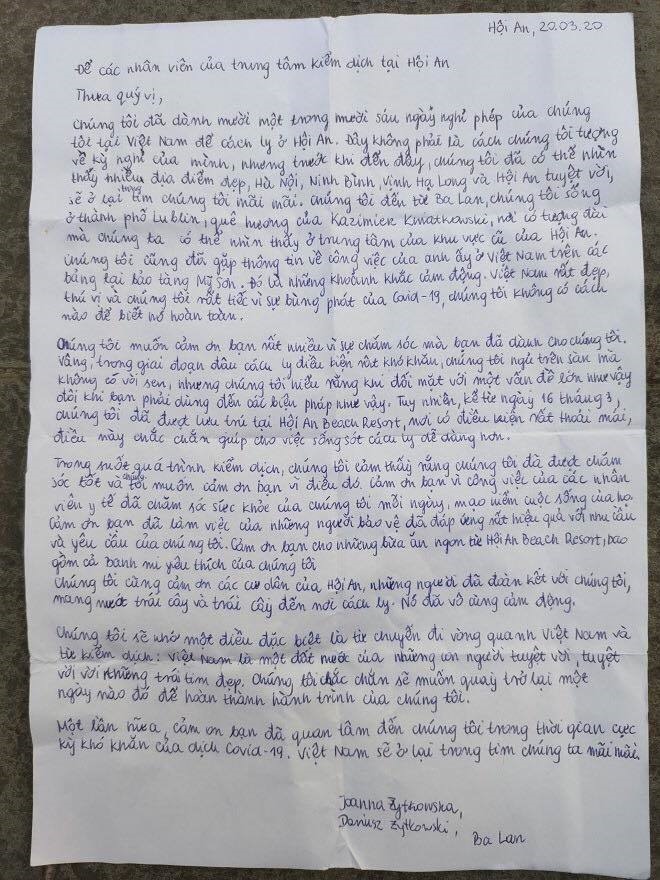 Hội An, 20.03.20
Để các nhân viên của trung tâm kiểm dịch tại Hội An
Thưa quý vị,
Chúng tôi đã dành mười một trong mười sáu ngày nghỉ phép của chúng
tôi tại Việt Nam để cách ly ở Hội An. Đây không phải là cách chúng tôi tượng
về kỳ nghỉ của mình, nhưng trước khi đến đây, chúng tôi đã có thể nhìn
thấy nhiều địa điểm đẹp, Hà Nội, Ninh Bình, Vịnh Hạ Long và Hội An tuyệt vời,
sẽ ở lại trong tim chúng tôi mãi mãi. Chúng tôi đến từ Ba Lan, chúng tôi sống
ở thành phố Lublin, quê hương của Kazimier Kwiatkowski, nơi có tượng đài
mà chúng ta có thể nhìn thấy ở trung tâm của khu vực cũ của Hội An.
Chúng tôi cũng đã gặp thông tin về công việc của anh ấy ở Việt Nam trên các
bảng tại bảo tàng Mỹ Sơn. Đó là những khoảnh khắc cảm động. Việt Nam rất đẹp,
thú vị và chúng tôi rất tiếc vì sự bùng phát của Covid-19, chúng tôi không có cách
nào để biết nó hoàn toàn.
Chúng tôi muốn cảm ơn bạn rất nhiều vì sự chăm sóc mà bạn đã dành cho chúng tôi.
Vâng, trong giai đoạn đầu cách ly điều kiện rất khó khăn, chúng tôi ngủ trên sàn mà
không có vòi sen, nhưng chúng tôi hiểu rằng khi đối mặt với một vấn đề lớn như vậy
đôi khi bạn phải dùng đến các biện pháp như vậy. Tuy nhiên, kể từ ngày 16 tháng 3,
chúng tôi đã được lưu trú tại Hội An Beach Resort, nơi có điều kiện rất thoải mái,
điều này chắc chắn giúp cho việc sống sót cách ly dễ dàng hơn.
Trong suốt quá trình kiểm dịch, chúng tôi cảm thấy rằng chúng tôi đã được chăm
sóc tốt và chúng tôi muốn cảm ơn bạn vì điều đó. Cảm ơn bạn vì công việc của các nhân
viên y tế đã chăm sóc sức khỏe của chúng tôi mỗi ngày, mạo hiểm cuộc sống của họ.
Cảm ơn bạn đã làm việc của những người bảo vệ đã đáp ứng rất hiệu quả với nhu cầu
và yêu cầu của chúng tôi. Cảm ơn bạn cho những bữa ăn ngon từ Hội An Beach Resort, bao
gồm cả bánh mì yêu thích của chúng tôi
Chúng tôi cũng cảm ơn các cư dân của Hội An, những người đã đoàn kết với chúng tôi,
mang nước trái cây và trái cây đến nơi cách ly. Nó đã vô cùng cảm động.
Chúng tôi sẽ nhớ một điều đặc biệt là từ chuyến đi vòng quanh Việt Nam và
từ kiểm dịch: Việt Nam là một đất nước của những con người tuyệt vời, tuyệt
vời với những trái tim đẹp. Chúng tôi chắc chắn sẽ muốn quay trở lại một
ngày nào đó để hoàn thành hành trình của chúng tôi.
Một lần nữa, cảm ơn bạn đã quan tâm đến chúng tôi trong thời gian cực
kỳ khó khăn của dịch Covid-19. Việt Nam sẽ ở lại trong tim chúng ta mãi mãi.
Joanna Żytkowska,
Dariusz Żytkowski,
Ba Lan